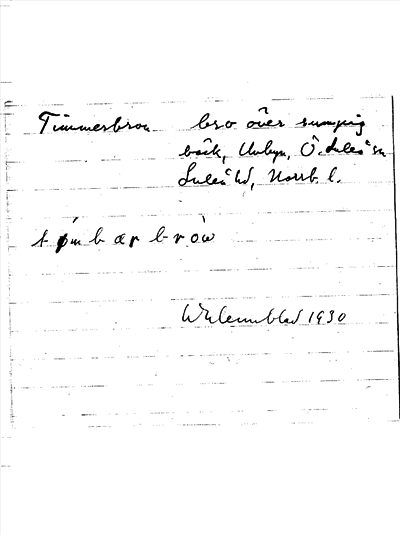 Timmerbron bro över sumpig
bäck, Unbyn, Ö. Luleå sn
Luleå hd, Norrb. l.
t ø m b æ r b r ò w
1930